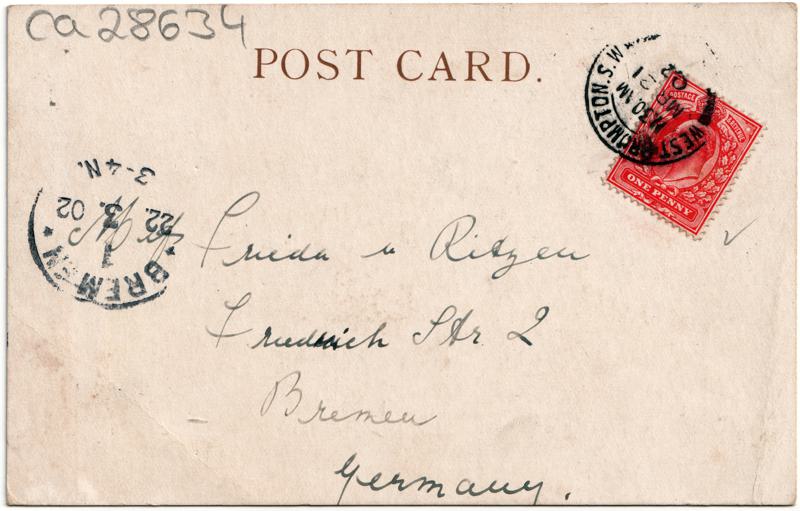 ca 28634
POST CARD.
WEST BROMPTON. S.W
MR 21
02
POSTAGE
ONE PENNY
BREMEN
1
22. 3. 02
3-4 N.
Frieda u Ritzen
Friedrich Str 2
Bremen
Germany.